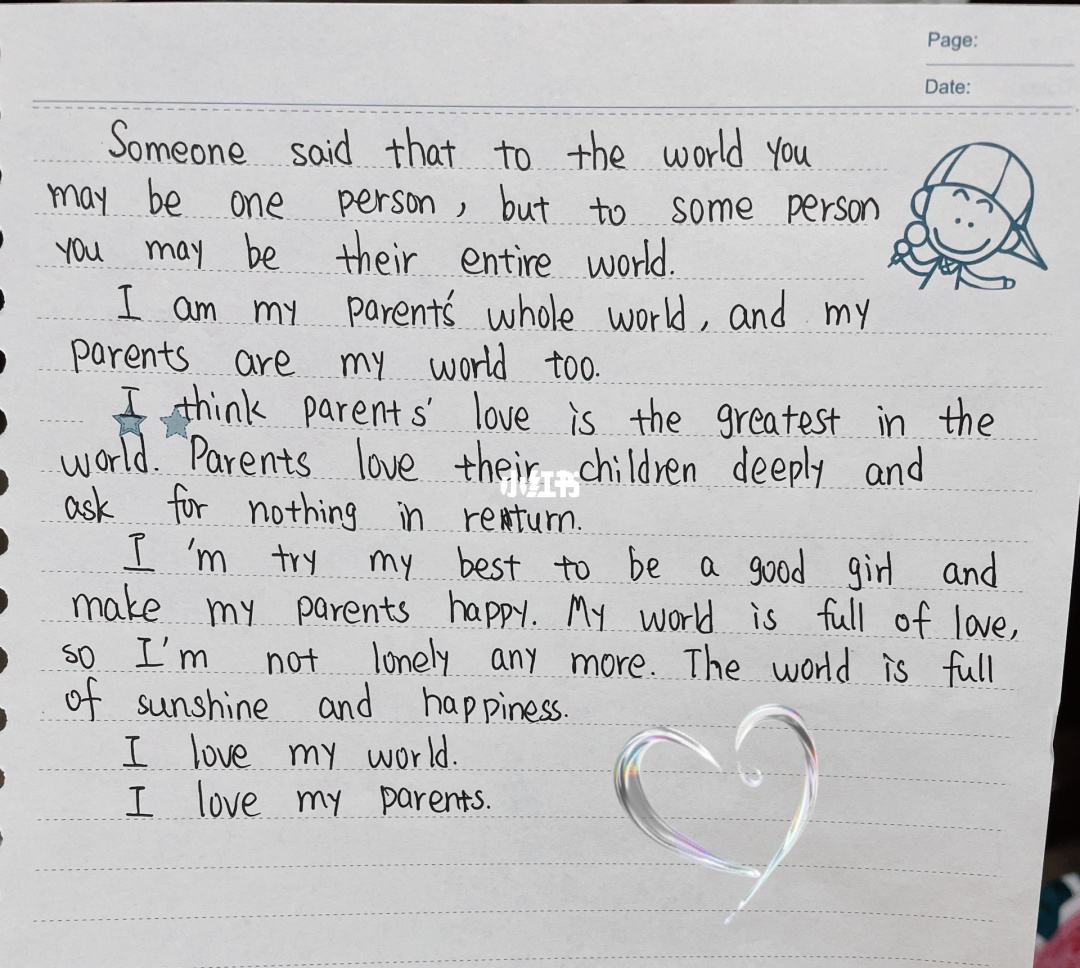 Page:
Date:
Someone said that to the world you
may be one person, but to some person
you may be their entire world.
I am my parent's whole world, and my
parents are my world too.
I think parents' love is the greatest in the
world. Parents love their children deeply and
小红书
ask for nothing in return.
I'm try my best to be a good girl and
make my parents happy. My world is full of love,
so I'm not lonely any more. The world is full
of sunshine and happiness.
I love my world.
I love my parents.